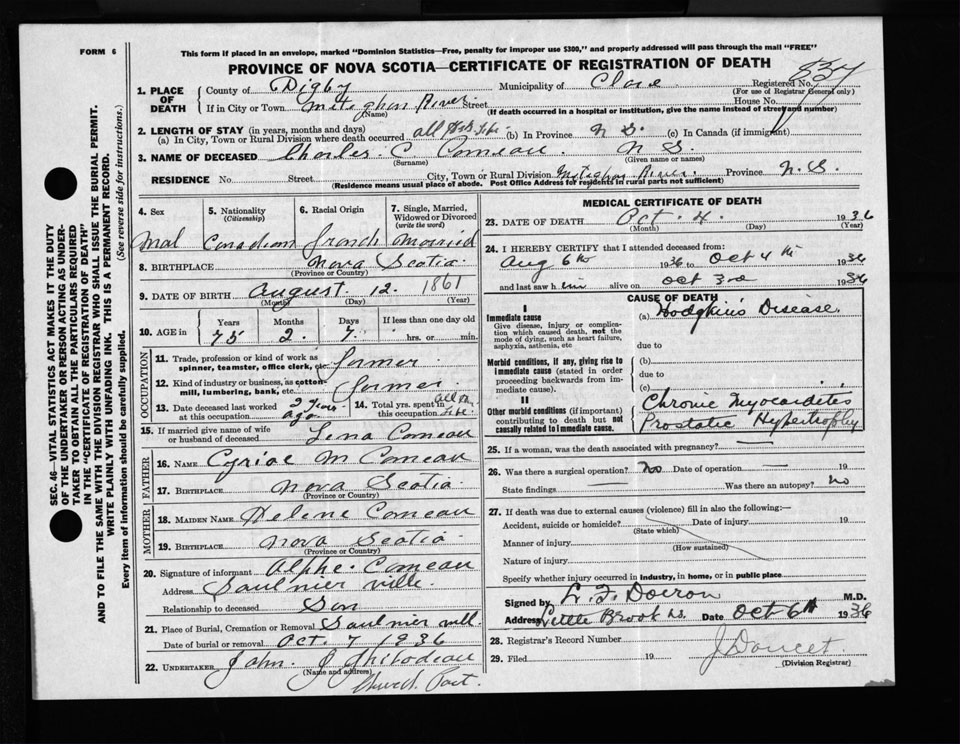 FORM 6
This form if placed in an envelope, marked "Dominion Statistics—Free, penalty for improper use $300," and properly addressed will pass through the mail "FREE"
PROVINCE OF NOVA SCOTIA—CERTIFICATE OF REGISTRATION OF DEATH
SEC. 46—VITAL STATISTICS ACT MAKES IT THE DUTY
OF THE UNDERTAKER OR PERSON ACTING AS UNDER-
TAKER TO OBTAIN ALL THE PARTICULARS REQUIRED
IN THE "CERTIFICATE OF REGISTRATION OF DEATH"
AND TO FILE THE SAME WITH THE DIVISION REGISTRAR WHO SHALL ISSUE THE BURIAL PERMIT.
WRITE PLAINLY WITH UNFADING INK. THIS IS A PERMANENT RECORD.
Every item of information should be carefully supplied. (See reverse side for instructions.)
1. PLACE OF DEATH
County of Digby Municipality of Clare Registered No. 837
(For use of Registrar General only)
If in City or Town Meteghan River Street House No.
(Name) (If death occurred in a hospital or institution, give the name instead of street and number)
2. LENGTH OF STAY (in years, months and days)
(a) In City, Town or Rural Division where death occurred all his life (b) In Province N S. (c) In Canada (if immigrant)
3. NAME OF DECEASED Charles. C. Comeau. N S.
(Surname) (Given name or names)
RESIDENCE No. Street City, Town or Rural Division Meteghan River. Province N. S.
(Residence means usual place of abode. Post Office Address for residents in rural parts not sufficient)
4. Sex Mal
5. Nationality (Citizenship) Canadian
6. Racial Origin french
7. Single, Married, Widowed or Divorced (write the word) Married
8. BIRTHPLACE Nova Scotia
(Province or Country)
9. DATE OF BIRTH August. 12. 1861
(Month) (Day) (Year)
10. AGE in Years Months Days If less than one day old
75 2. 7. hrs. or min.
OCCUPATION
11. Trade, profession or kind of work as spinner, teamster, office clerk, etc. farmer.
12. Kind of industry or business, as cotton-mill, lumbering, bank, etc. farmer
13. Date deceased last worked at this occupation. 2 years ago
14. Total yrs. spent in this occupation. all his life
15. If married give name of wife or husband of deceased Lena Comeau
FATHER
16. NAME Cyriac M Comeau
17. BIRTHPLACE Nova Scotia
(Province or Country)
MOTHER
18. MAIDEN NAME Helene Comeau
19. BIRTHPLACE Nova Scotia
(Province or Country)
20. Signature of informant Alphe. Comeau
Address Saulnierville.
Relationship to deceased Son
21. Place of Burial, Cremation or Removal Saulnierville.
Date of burial or removal Oct. 7 1936
22. UNDERTAKER John. J Thibodeau
(Name and address)
Church Point.
MEDICAL CERTIFICATE OF DEATH
23. DATE OF DEATH Oct. 4. 1936
(Month) (Day) (Year)
24. I HEREBY CERTIFY that I attended deceased from:
Aug 6th 1936 to Oct 4th 1936
and last saw him alive on Oct 3rd 1936
CAUSE OF DEATH
I
Immediate cause
Give disease, injury or complication which caused death, not the mode of dying, such as heart failure, asphyxia, asthenia, etc
(a) Hodgkin's Disease.
due to
Morbid conditions, if any, giving rise to immediate cause (stated in order proceeding backwards from immediate cause).
(b)
due to
(c)
II
Other morbid conditions (if important) contributing to death but not causally related to immediate cause.
Chronic Myocarditis
Prostatic Hypertrophy
25. If a woman, was the death associated with pregnancy? —
26. Was there a surgical operation? No Date of operation — 19
State findings — Was there an autopsy? No
27. If death was due to external causes (violence) fill in also the following:—
Accident, suicide or homicide? Date of injury 19
(State which)
Manner of injury
(How sustained)
Nature of injury
Specify whether injury occurred in industry, in home, or in public place
Signed by L. F. Doiron M.D.
Address Little Brook N.S. Date Oct 6th 1936
28. Registrar's Record Number
29. Filed 19 J Doucet
(Division Registrar)